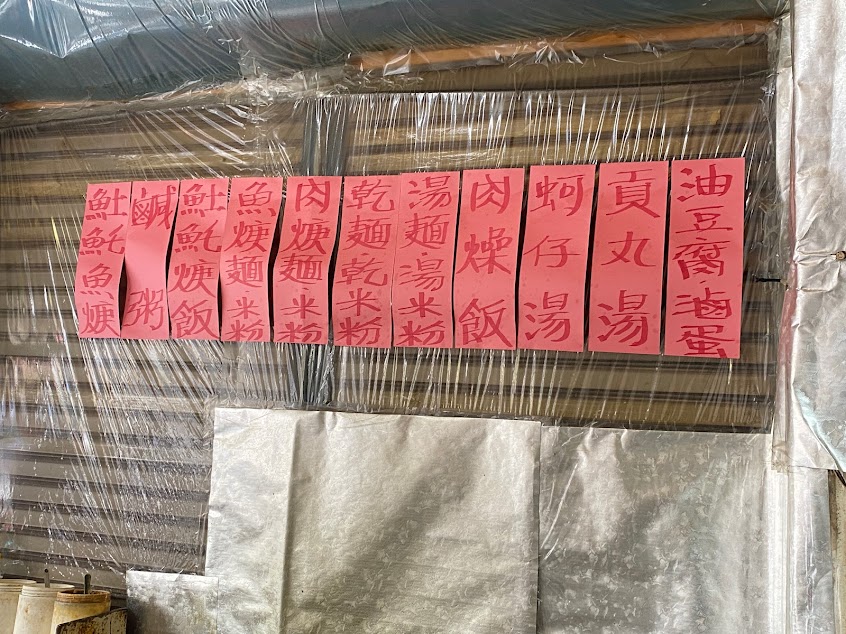 油豆腐滷蛋
貢丸湯
蚵仔湯
肉燥飯
湯麵湯米粉
乾麵乾米粉
肉焿麵米粉
魚焿麵米粉
魠魠焿飯
鹹粥
魠魠魚焿